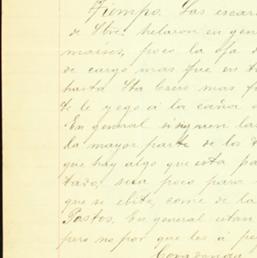 Tiempo. Las escar
de Obre. helaron en gene
maises, poco la oja d
de cargo mas que en t
hasta Sta Cruz mas f
le yego á la caña
En general siguen la
la mayor parte de los
que hay algo que esta pa
tado, sea poco para
que se evite, come de la
Pastos. En general estan
pero no por que les á pe